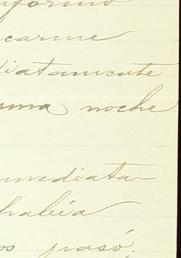 informo
carme
diatamente
una noche
nmediata-
habia
os pasó.